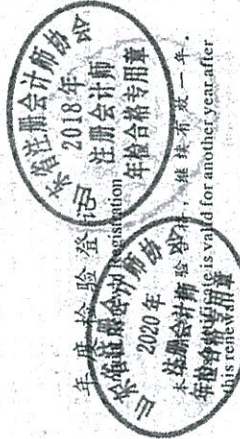 年度检验登记
Annual Renewal Registration
本证书经检验合格，继续有效一年。
This certificate is valid for another year after
this renewal.
东省注册会计师协会
2018年
注册会计师
年检合格专用章
山东省注册会计师协
2020年
注册会计师
年检合格专用章